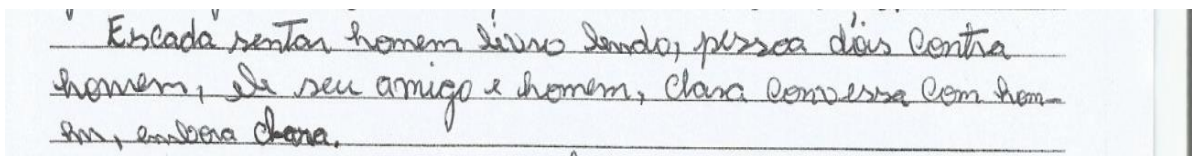 Escada sentar homem livro lendo, pessoa dois contra
homem, ele seu amigo e homem, clara conversa com hom-
em, embora clara.